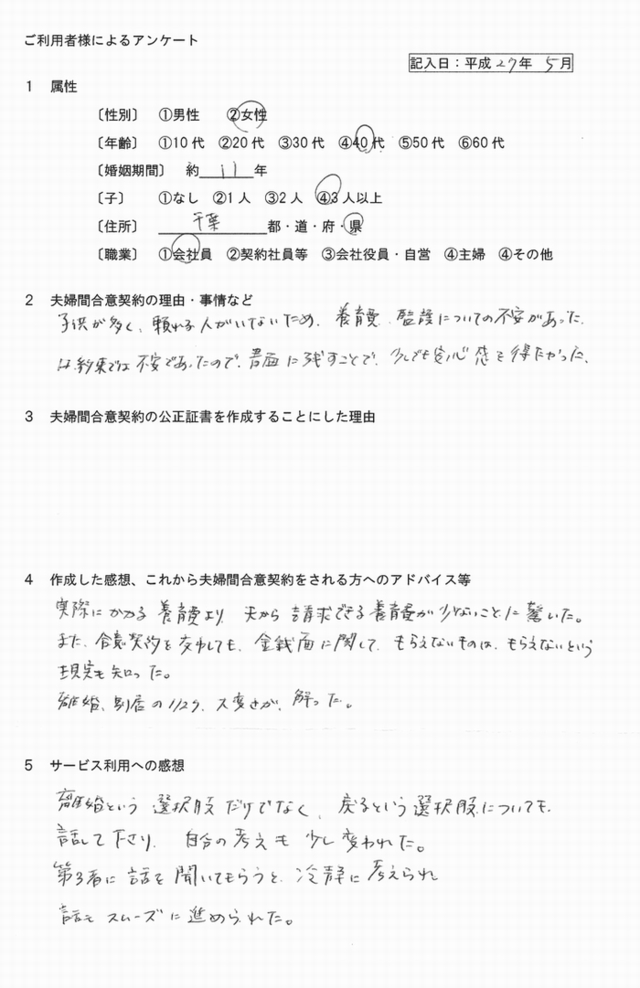 ご利用者様によるアンケート
記入日:平成27年 5月
1 属性
〔性別〕 ①男性 ②女性
〔年齢〕 ①10代 ②20代 ③30代 ④40代 ⑤50代 ⑥60代
〔婚姻期間〕 約 11 年
〔子〕 ①なし ②1人 ③2人 ④3人以上
〔住所〕 千葉 都・道・府・県
〔職業〕 ①会社員 ②契約社員等 ③会社役員・自営 ④主婦 ④その他
2 夫婦間合意契約の理由・事情など
子供が多く、頼れる人がいないため、養育費、監護についての不安があった。
口約束では不安であったので、書面に残すことで、少しでも安心感を得たかった。
3 夫婦間合意契約の公正証書を作成することにした理由
4 作成した感想、これから夫婦間合意契約をされる方へのアドバイス等
実際にかかる養育費より、夫から請求できる養育費が少ないことに驚いた。
また、合意契約を交わしても、金銭面に関して、もらえないものは、もらえないという
現実も知った。
離婚、別居のリスク、大変さが、解った。
5 サービス利用への感想
離婚という選択肢だけでなく、戻るという選択肢についても、
話して下さり、自分の考えも少し変われた。
第3者に話を聞いてもらうと、冷静に考えられ
話もスムーズに進められた。